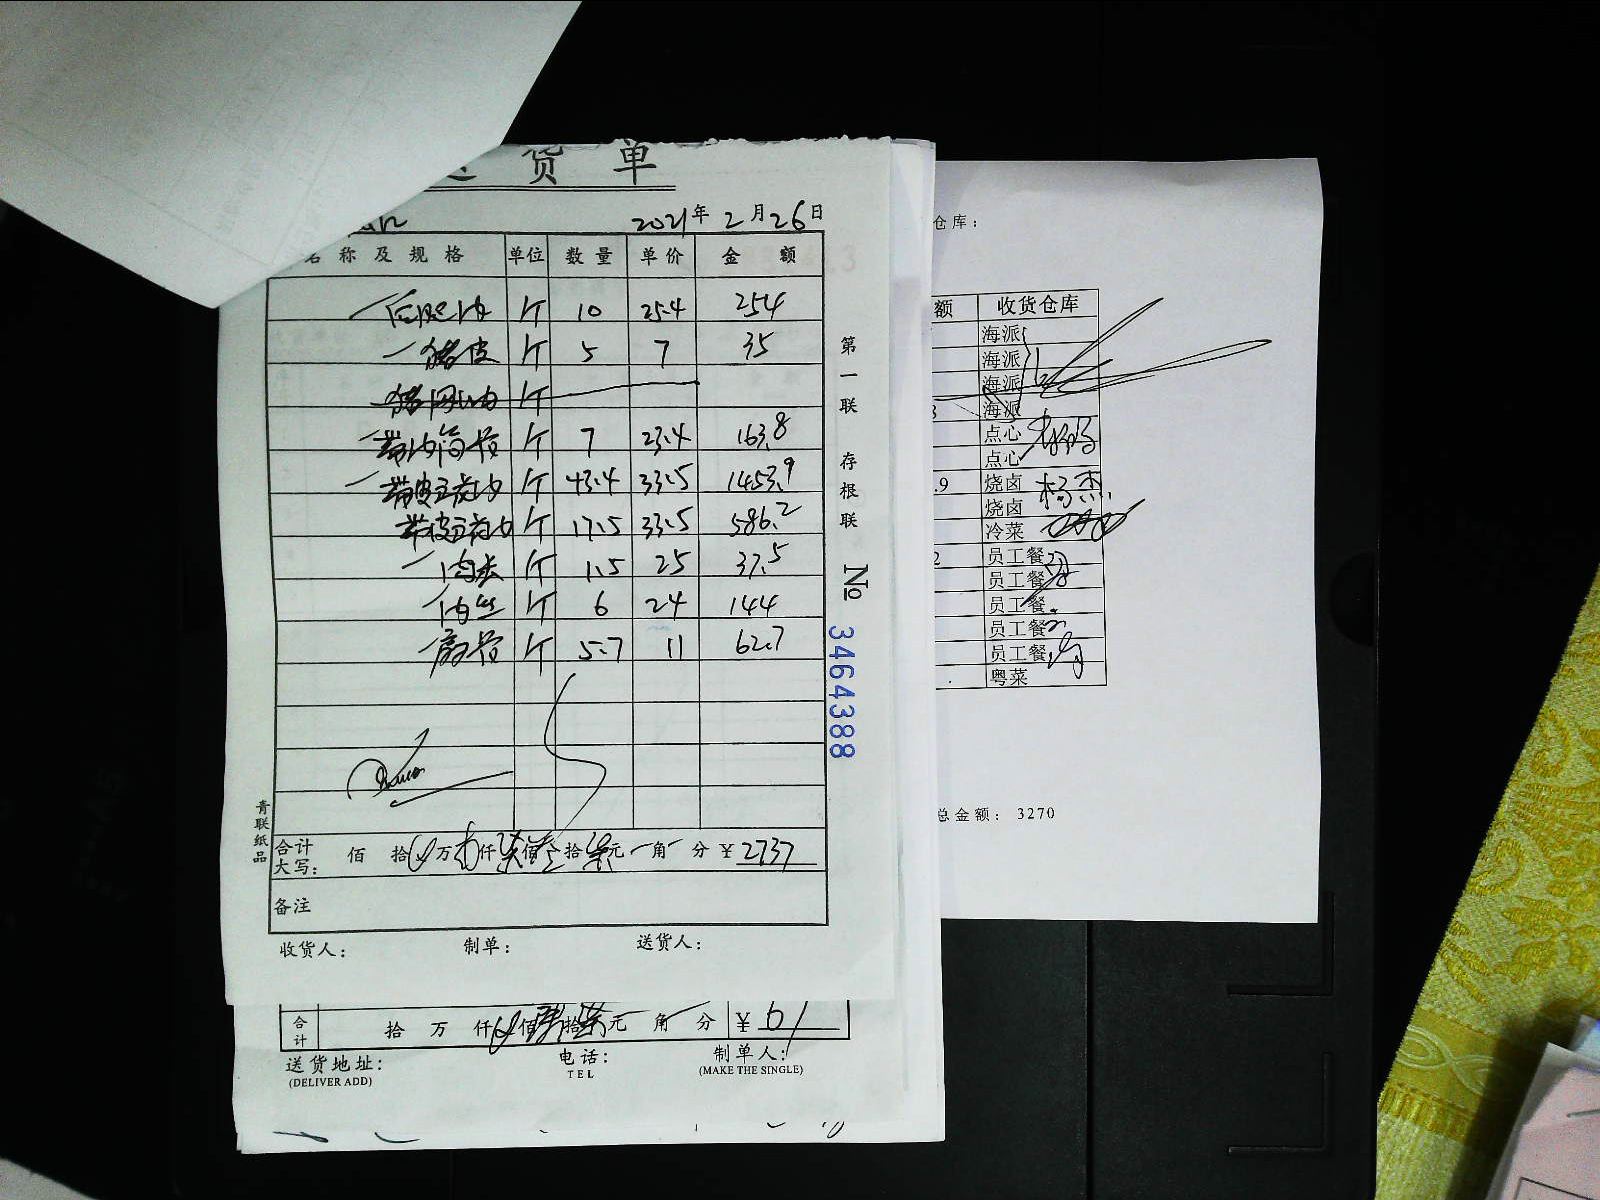 送货单
2021年2月26日
名称及规格 单位 数量 单价 金额
后腿肉 斤 10 25.4 254
猪皮 斤 5 7 35
猪网油 斤
带肉筒骨 斤 7 23.4 163.8
带皮五花肉 斤 43.4 33.5 1453.9
带皮五花肉 斤 17.5 33.5 586.2
斤 1.5 25 37.5
肉丝 斤 6 24 144
扇骨 斤 5.7 11 62.7
合计大写: 佰 拾 万 仟 佰 拾 元 角 分 ¥2737
备注
收货人: 制单: 送货人:
第一联 存根联 No 3464388
青联纸品
合计 拾 万 仟 佰 拾 元 角 分 ¥
送货地址: 电话: 制单人:
(DELIVER ADD) TEL (MAKE THE SINGLE)
仓库:
额 收货仓库
海派
海派
海派
3 海派
点心
点心
.9 烧卤 杨杰
烧卤
冷菜
2 员工餐
员工餐
员工餐
员工餐
员工餐
粤菜
总金额: 3270